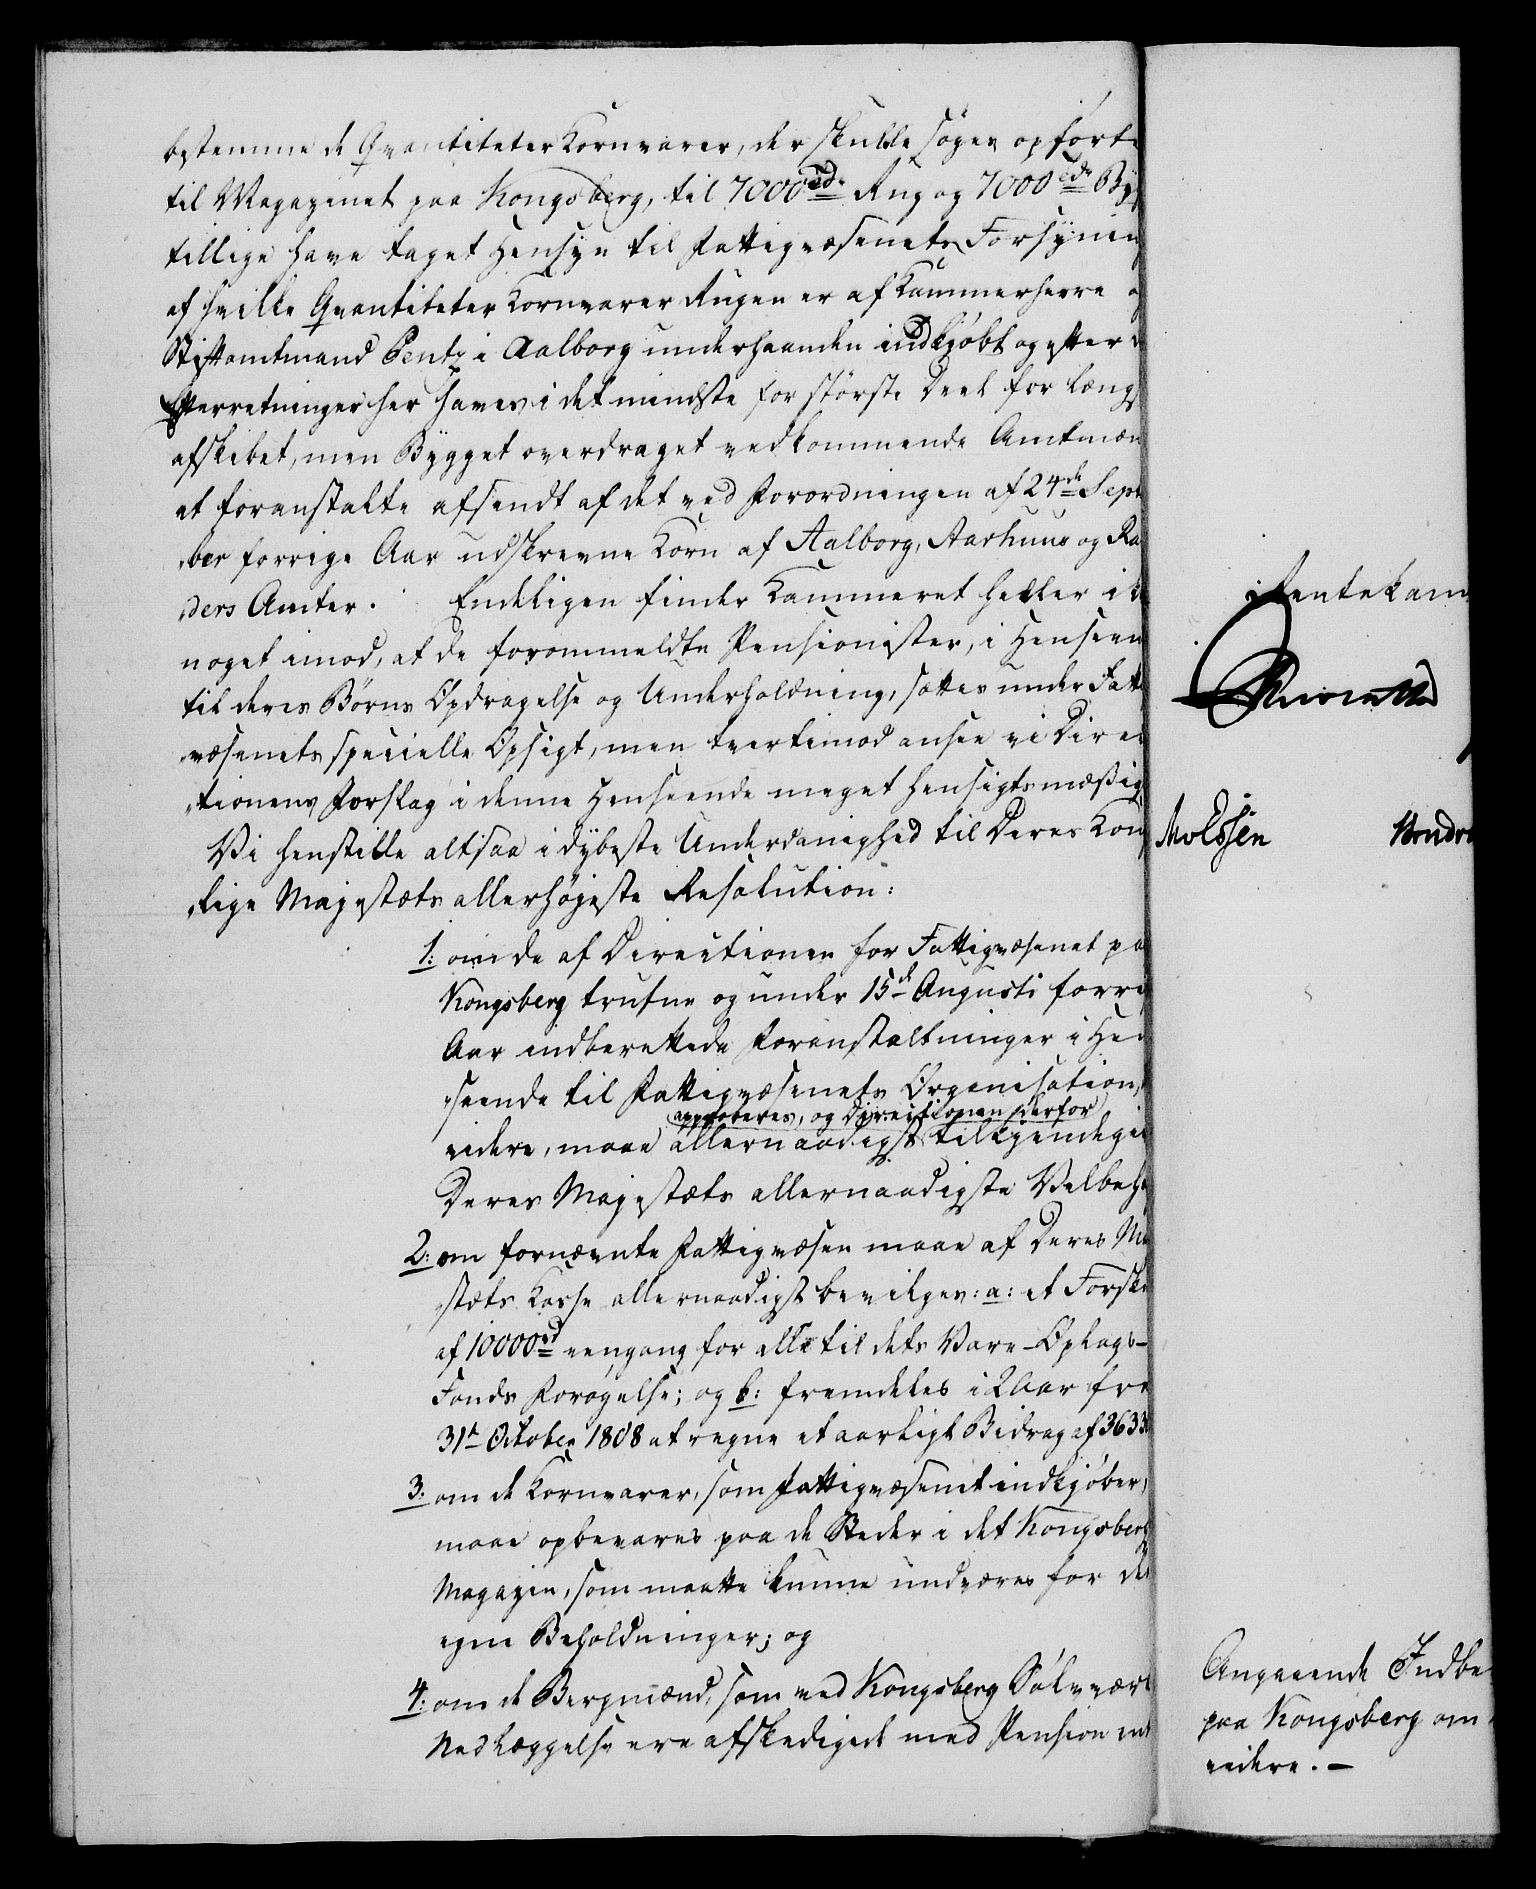 bestemme de Qvantiteter Kornvarer, der skulle søges opførte
til Magazinet paa Kongsberg, til 7000 Tdr Rug og 7000 Tdr Byg
tillige have taget Hensyn til Fattigvæsenets Forsynin
af hvilke Qvantiteter Kornvarer Rugen er af Kammerherre o
Stiftamtmand Pentz i Aalborg underhaanden indkjøbt og efter
Efterretninger her haves i det mindste for største Deel for længs
afskibet, men Bygget overdraget vedkommende Amtmæn
at foranstalte afsendt af det ved Forordningen af 24de Sept
ber forrige Aar udskrevne Korn af Aalborg, Aarhuus og Ra
ders Amter. Endeligen finder Kammeret heller ik
noget imod, at de forommeldte Pensionister, i Henseen
til deres Børns Opdragelse og Underholdning, sættes under Fatt
væsenets specielle Opsigt, men tvertimod ansee vi Direc
tionens Forslag i denne Henseende meget hensigtsmæssig
Vi henstille altsaa i dybeste Underdanighed til Deres Kon
lige Majestæts allerhøjeste Resolution:
1: om de af Directionen for Fattigvæsenet pa
Kongsberg trufne og under 15de Augusti forri
Aar indberettede Foranstaltninger i Hen
seende til Fattigvæsenets Organisation,
approberes, og Directionen derfor
videre, maae allernaadigst tilkjendegi
Deres Majestæts allernaadigste Velbeha
2: om fornævnte Fattigvæsen maae af Deres Ma
stæts Kasse allernaadigst bevilges: a: et Forsk
af 10000 rd eengang for alle til dets Vare-Oplags-
Fonds Forøgelse; og b: fremdeles i 2 Aar fra
31te October 1808 at regne et aarligt Bidrag af 3633
3. om de Kornvarer, som Fattigvæsenet indkjøber,
maae opbevares paa de Steder i det Kongsberg
Magazin, som maatte kunne undværes for de
egne Beholdninger; og
4: om de Bergmænd, som ved Kongsberg Sølvværk
Nedlæggelse ere afskedigede med Pension
Rentekam
Essen
Angaaende Indbe
paa Kongsberg om
videre. –